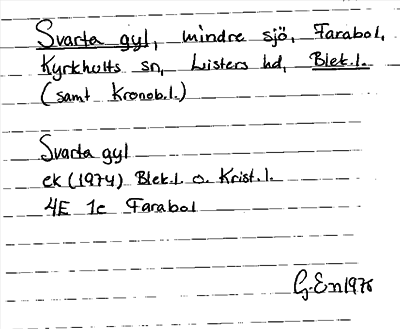 Svarta gyl, mindre sjö, Farabol,
Kyrkhults sn, Listers hd, Blek.l.
(samt Kronob.l.)
Svarta gyl
ek (1974) Blek.l. o. Krist.l.
4E 1c Farabol
G.En 1976